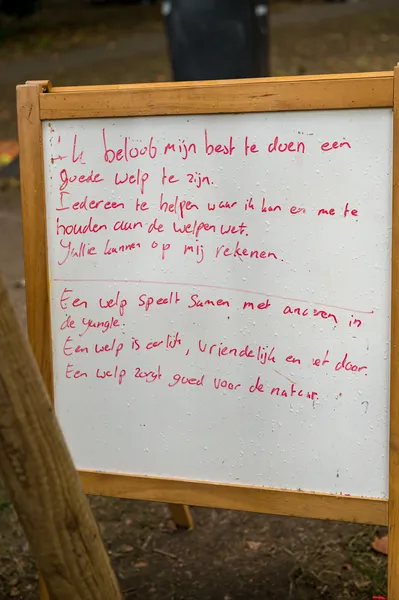 Ik beloof mijn best te doen een
goede welp te zijn.
Iedereen te helpen waar ik kan en me te
houden aan de welpenwet.
Jullie kunnen op mij rekenen.
Een welp speelt samen met anderen in
de jungle.
Een welp is eerlijk, vriendelijk en zet door.
Een welp zorgt goed voor de natuur.